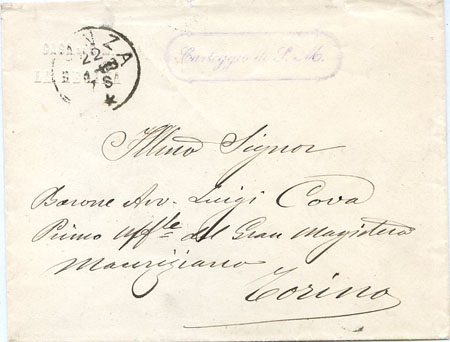 NZA
22
78
Carteggio di S. M.
Illmo Signor
Barone Avv. Luigi Cova
Primo Uff.le del Gran Magistero
Mauriziano
Torino